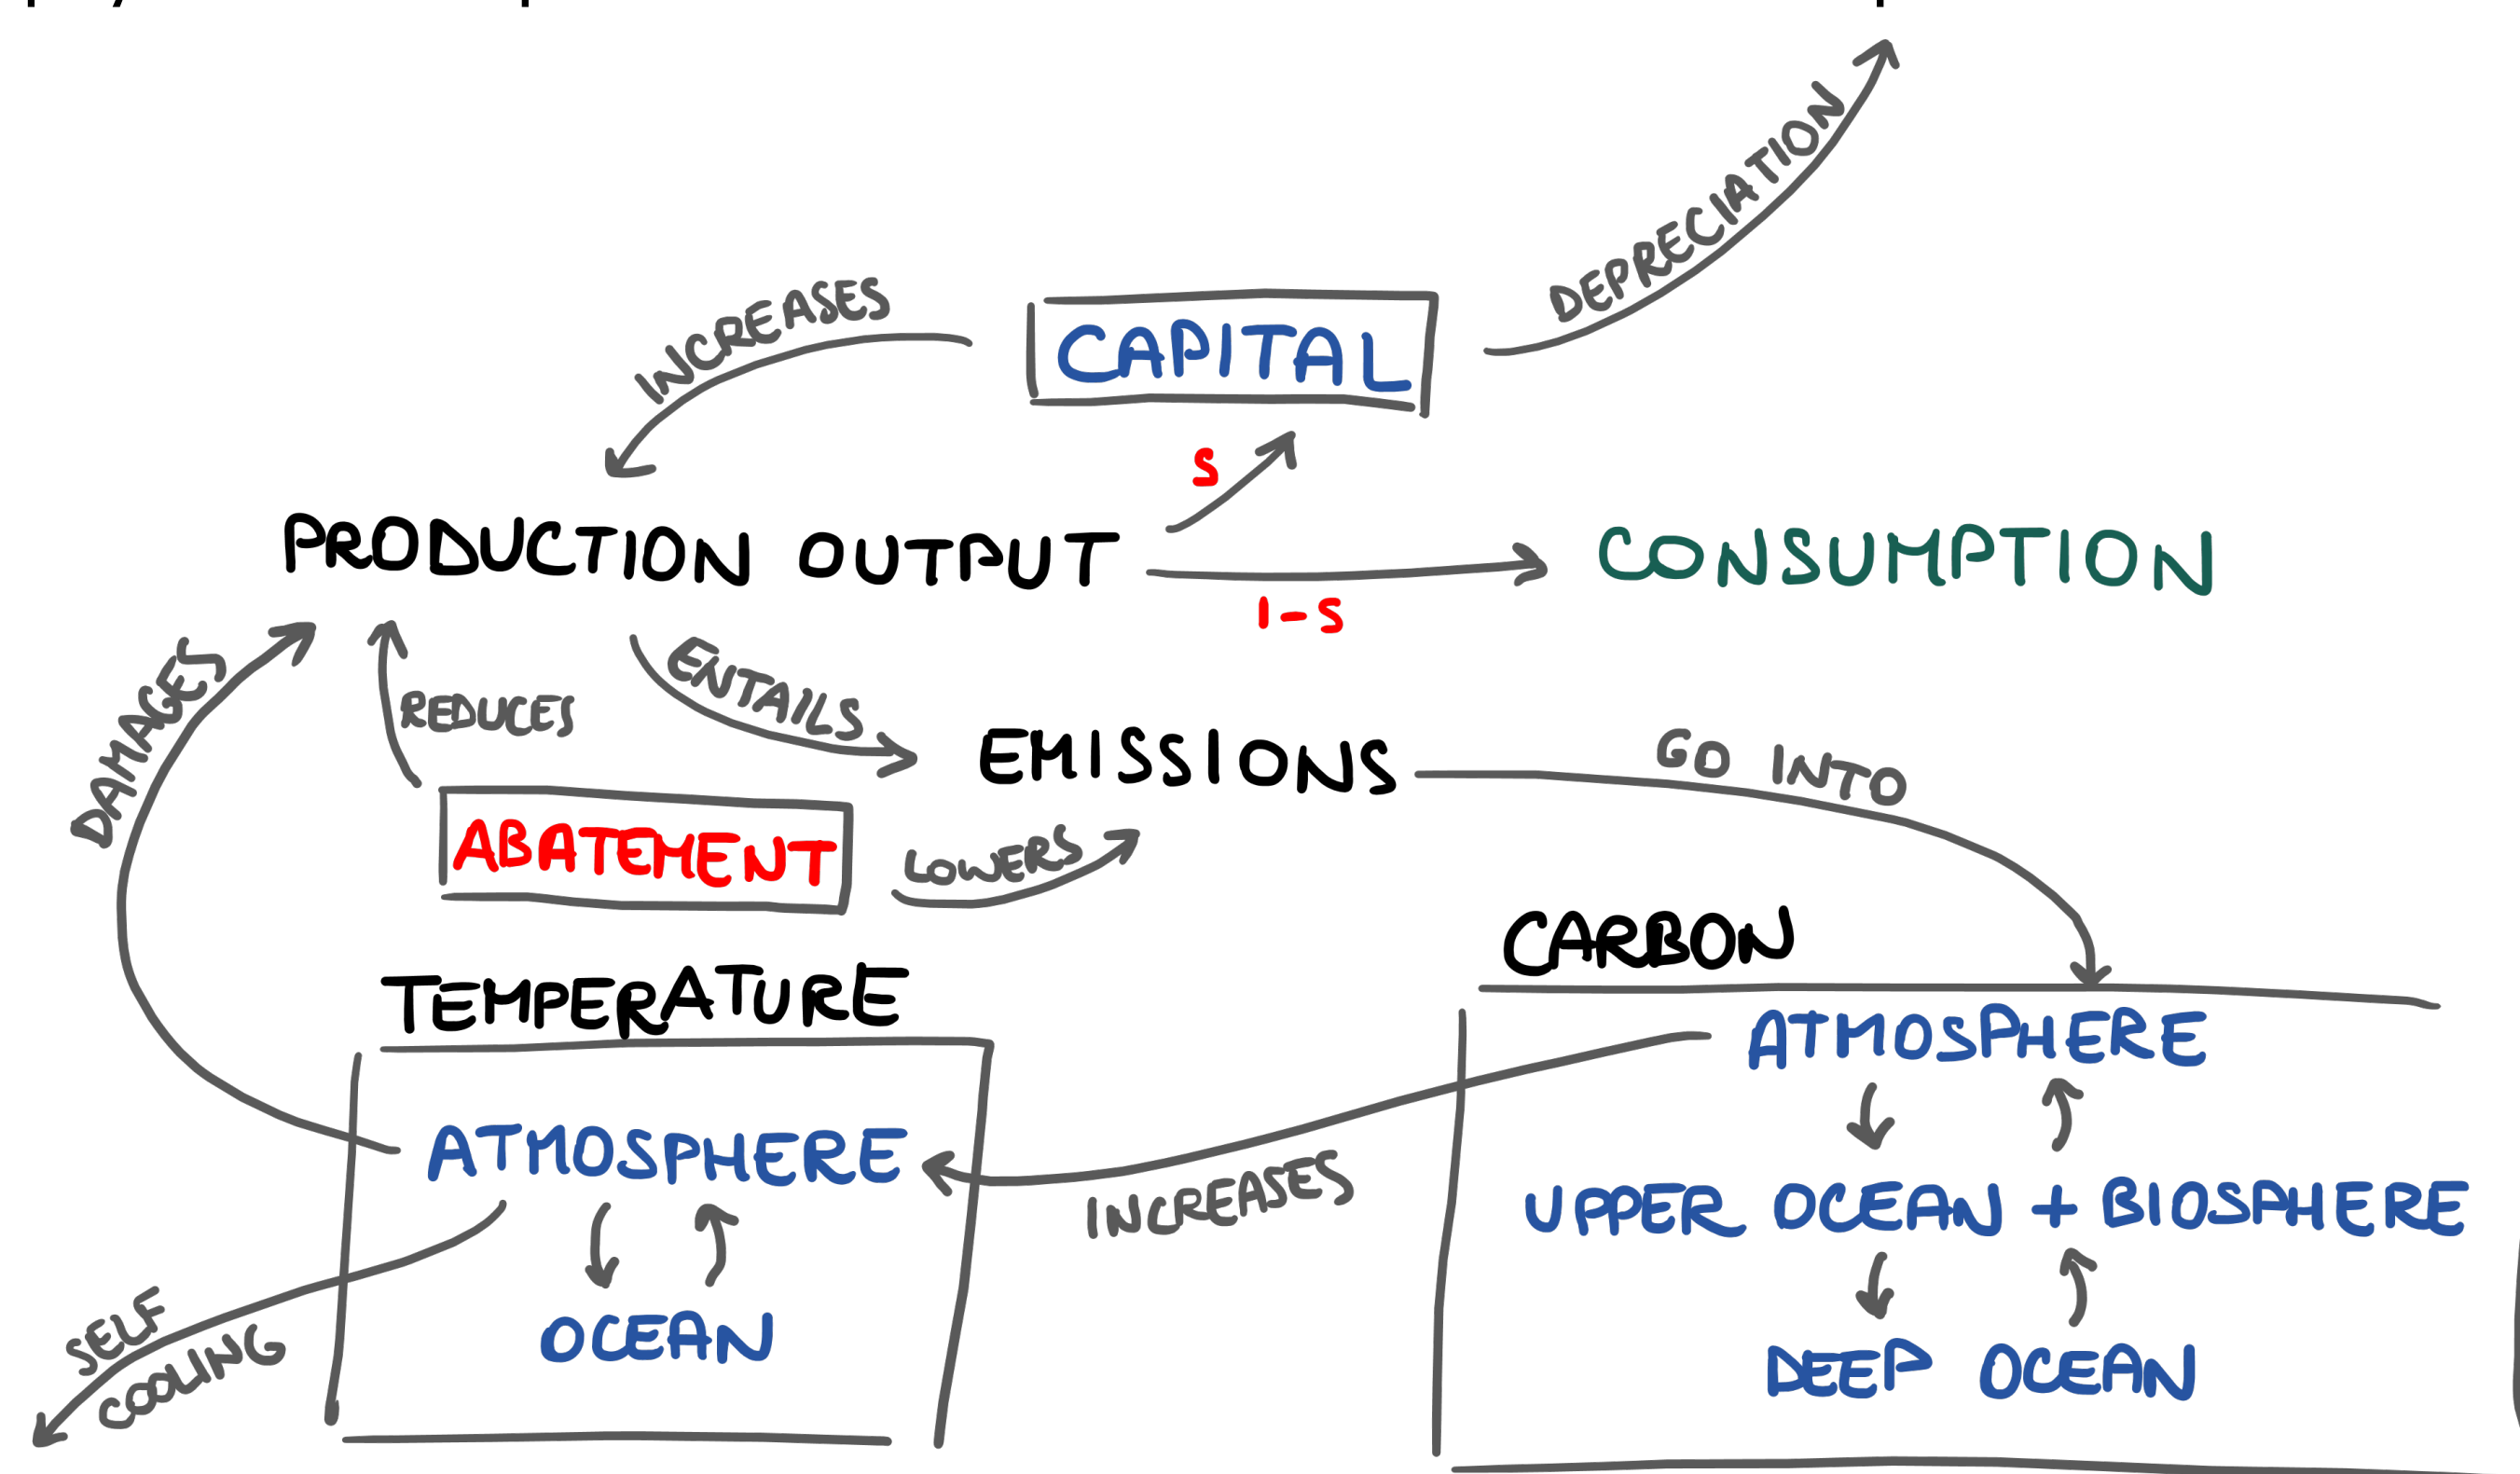 DEPRECIATION
INCREASES
CAPITAL
S
PRODUCTION OUTPUT
CONSUMPTION
1-S
DAMAGES
REDUCES
ENTAILS
EMISSIONS
GO INTO
ABATEMENT
LOWERS
CARBON
TEMPERATURE
ATMOSPHERE
ATMOSPHERE
INCREASES
UPPER OCEAN + BIOSPHERE
OCEAN
DEEP OCEAN
SELF
COOLING